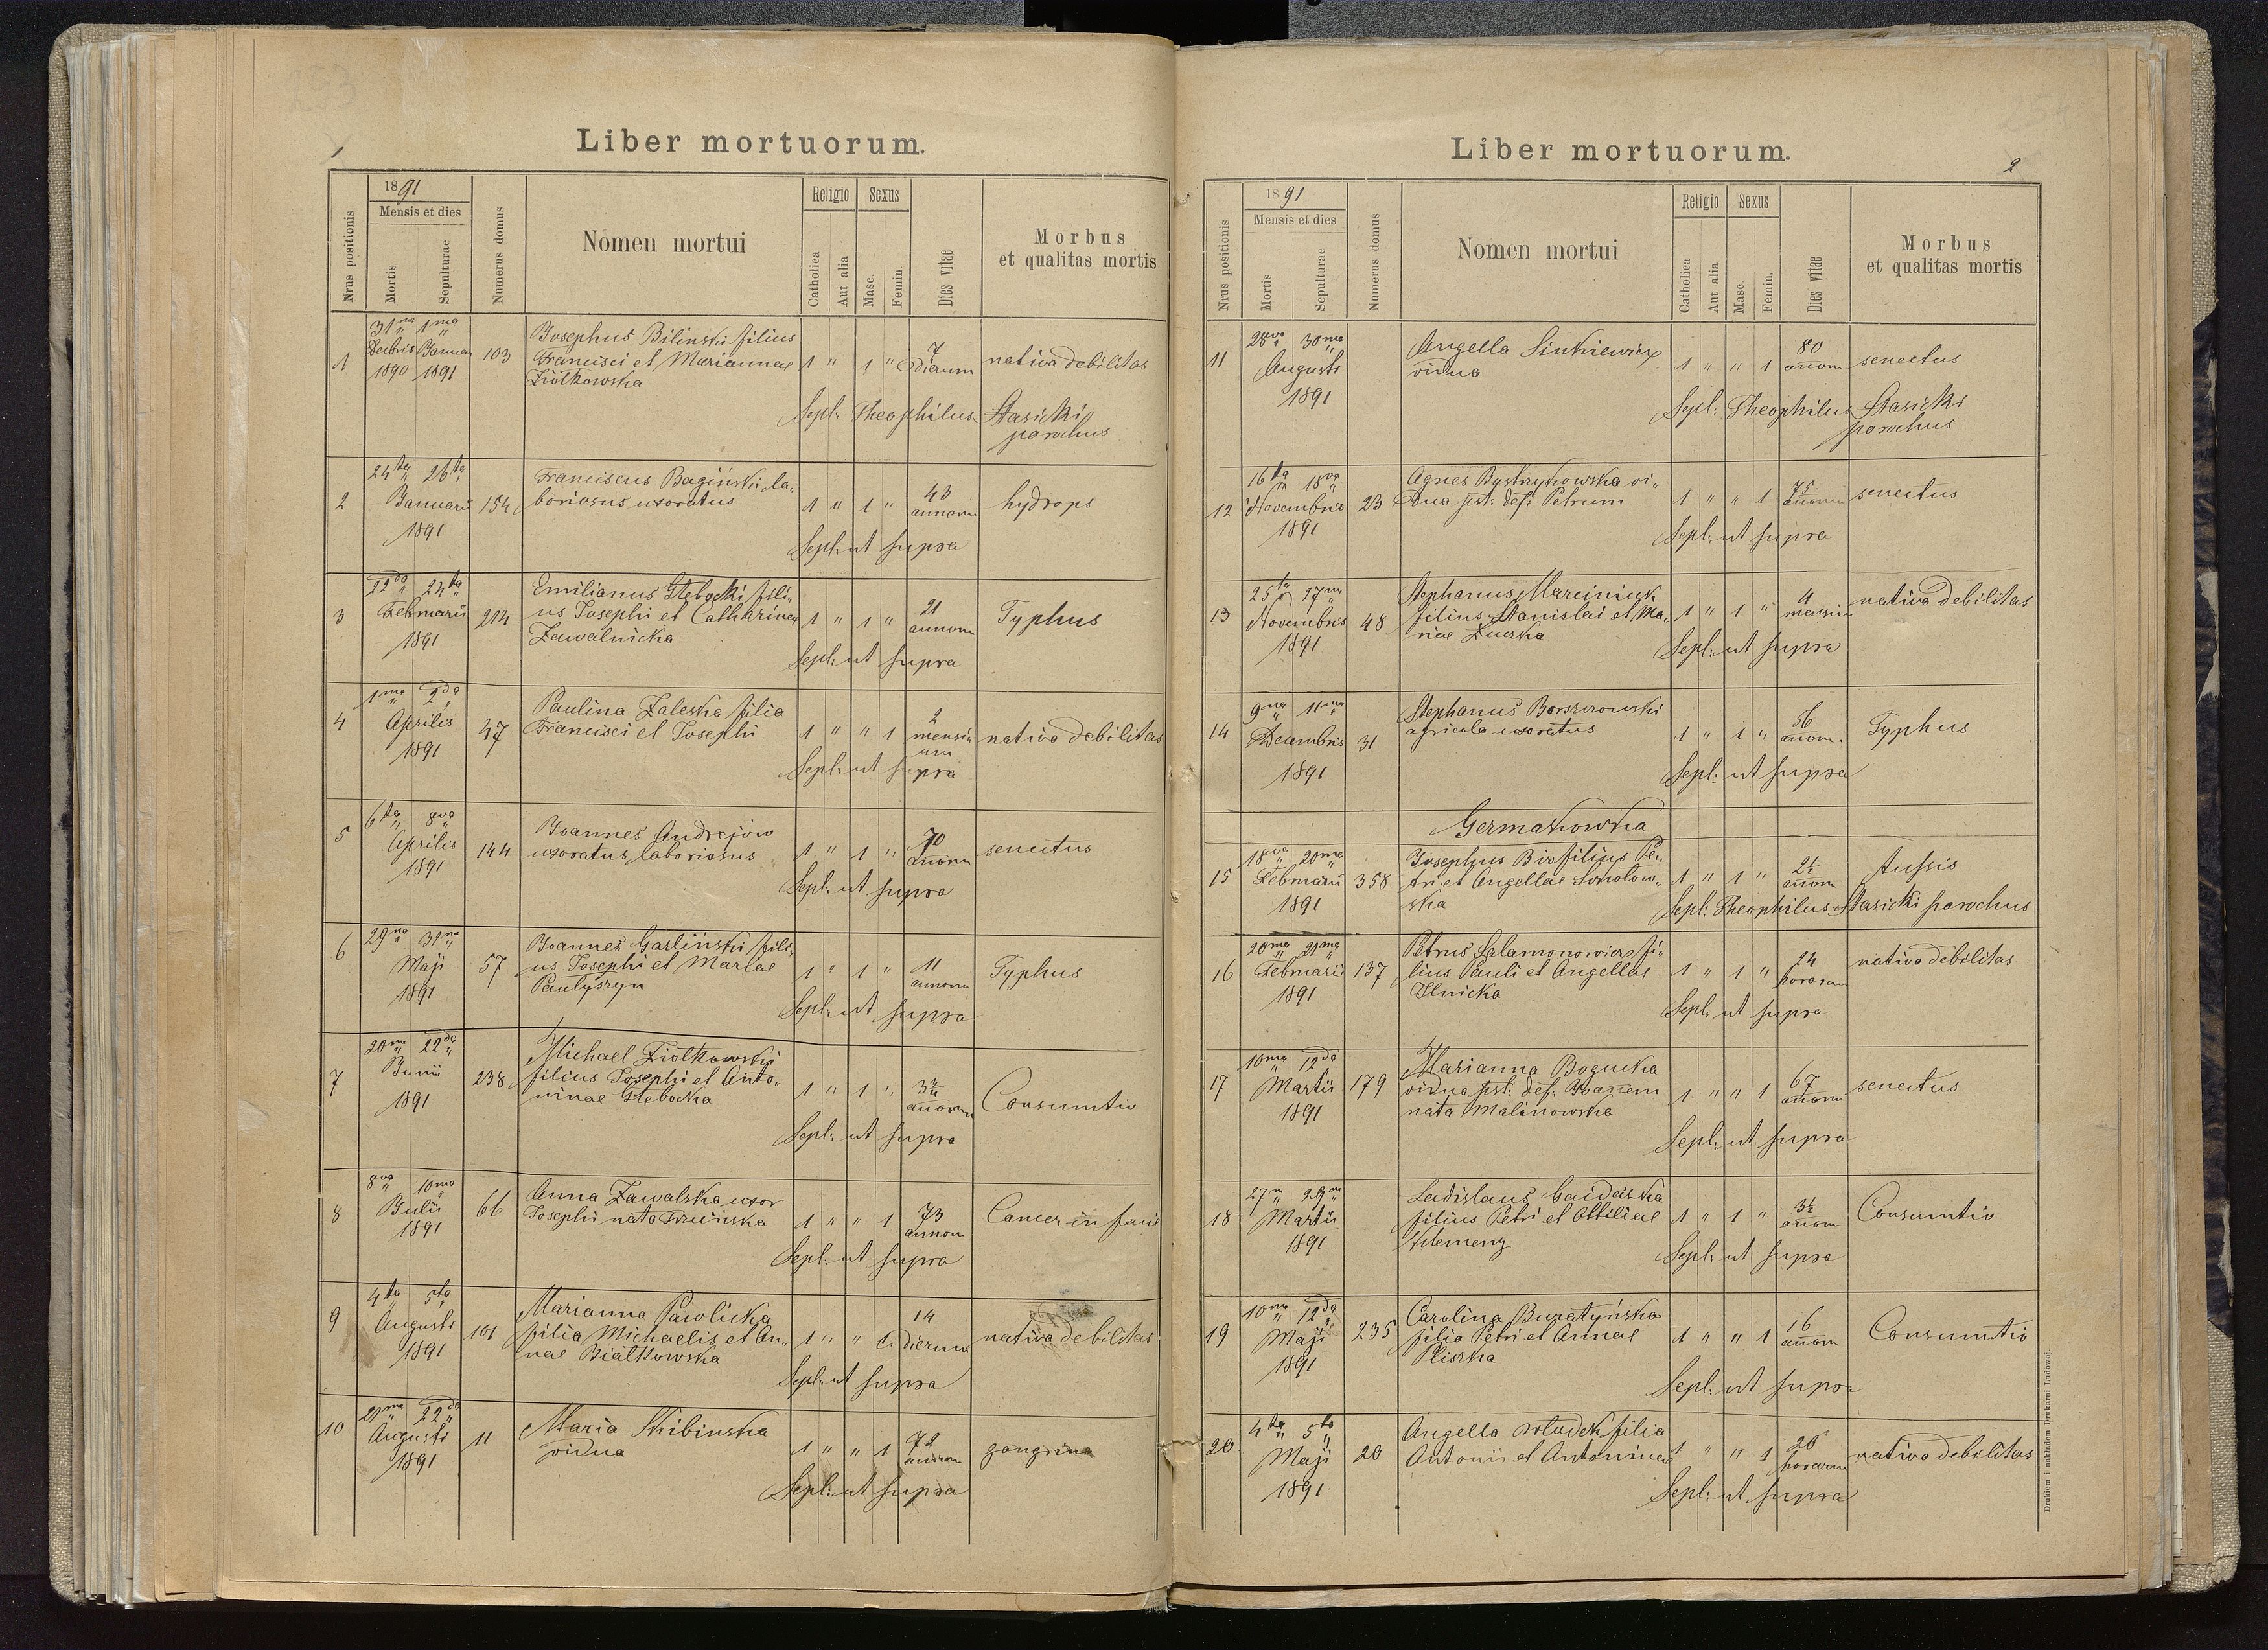 1
Liber mortuorum.
Nrus positionis
1891
Mensis et dies
Mortis
Sepulturae
Numerus domus
Nomen mortui
Religio
Catholica
Aut alia
Sexus
Masc.
Femin
Dies vitae
Morbus
et qualitas mortis
31ma 1ma
Decbris Januar
1890 1891
1 103
Josephus Bilinski filius
Francisci et Mariannae
Ziółkowska
1 " 1 "
7
dierum
nativa debilitas
Sepl: Theophilus Stasicki
parochus
24ta 26ta
2 Januarii 154
1891
Franciscus Bagiński la-
boriosus uxoratus
1 " 1 "
43
annorum
hydrops
Sepl: ut supra
22da 24ta
3 Februarii 214
1891
Emilianus Głębocki fili-
us Josephi et Catharinae
Zawalnicka
1 " 1 "
21
annorum
Typhus
Sepl: ut supra
1ma 2da
4 Aprilis 47
1891
Paulina Zaleska filia
Francisci et Josephi
1 " " 1
2
mensi-
um
nativa debilitas
Sepl: ut supra
6ta 8va
5 Aprilis 144
1891
Joannes Andrejów
uxoratus laboriosus
1 " 1 "
70
annorum
senectus
Sepl: ut supra
29na 31ma
6 Maji 57
1891
Joannes Garliński fili-
us Josephi et Mariae
Paulyszyn
1 " 1 "
11
annorum
Typhus
Sepl: ut supra
20ma 22da
7 Junii 238
1891
Michael Ziółkowski
filius Josephi et Anto-
ninae Głębocka
1 " 1 "
annorum
Consumtio
Sepl: ut supra
8va 10ma
8 Julii 66
1891
Anna Zawalska uxor
Josephi nata
1 " " 1
73
annorum
Cancer in facie
Sepl: ut supra
4ta 5ta
9 Augusti 101
1891
Marianna Pawlicka
filia Michaelis et An-
nae Białkowska
1 " " 1
14
dierum
nativa debilitas
Sepl: ut supra
21ma 22da
10 Augusti 11
1891
Maria Skibinska
vidua
1 " " 1
72
annorum
gangrina
Sepl: ut supra
2
Liber mortuorum.
Nrus positionis
1891
Mensis et dies
Mortis
Sepulturae
Numerus domus
Nomen mortui
Religio
Catholica
Aut alia
Sexus
Masc
Femin.
Dies vitae
Morbus
et qualitas mortis
28va 30ma
11 Augusti
1891
Angella Sinkiewicz
vidua
1 " " 1
80
annorum
senectus
Sepl: Theophilus Stasicki
parochus
16ta 18va
12 Novembris 23
1891
Agnes Bystrzykowska vi-
dua pst: def: Petrum
1 " " 1
75
annorum
senectus
Sepl: ut supra
25ta 27ma
13 Novembris 48
1891
Stephanus Marciniuk
filius Stanislai et Ma-
riae
1 " 1 "
4
mensium
nativa debilitas
Sepl: ut supra
9na 11ma
14 Decembris 31
1891
Stephanus Borszczowski
agricola uxoratus
1 " 1 "
56
annor.
Typhus
Sepl: ut supra
Germakowka
18va 20ma
15 Februarii 358
1891
Josephus filius Pe-
tri et Angellae Sokolow-
ska
1 " 1 "
2½
annorum
tussis
Sepl: Theophilus Stasicki parochus
20ma 21ma
16 Februarii 137
1891
Petrus Salamonowicz fi-
lius Pauli et Angellae
Ilnicka
1 " 1 "
24
horarum
nativa debilitas
Sepl: ut supra
10ma 12da
17 Martii 179
1891
Marianna Bogucka
vidua pst: def: Joannem
nata Malinowska
1 " " 1
67
annorum
senectus
Sepl: ut supra
27 29
18 Martii
1891
Ladislaus Gaidaszka
filius Petri et Ottiliae
Klemenz
1 " 1 "
3½
annorum
Consumtio
Sepl: ut supra
10ma 12da
19 Maji 235
1891
Carolina Buratyńska
filia Petri et Annae
Pliszka
1 " " 1
16
annorum
Consumtio
Sepl: ut supra
4ta 5ta
20 Maji 20
1891
Angella Wludek filia
Antonii et Antoninae
1 " " 1
26
horarum
nativa debilitas
Sepl: ut supra
Drukiem i nakładem Drukarni Ludowej